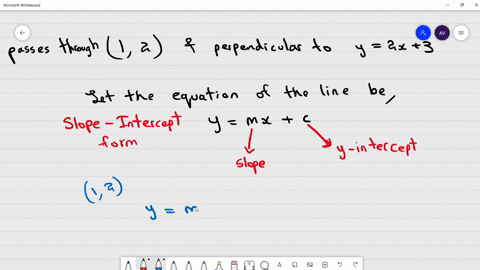 Microsoft Whiteboard
AV
passes through (1, 2) & perpendicular to y = 2x + 3
Let the equation of the line be,
Slope - Intercept form
y = mx + c
slope
y-intercept
(1, 2)
y = m